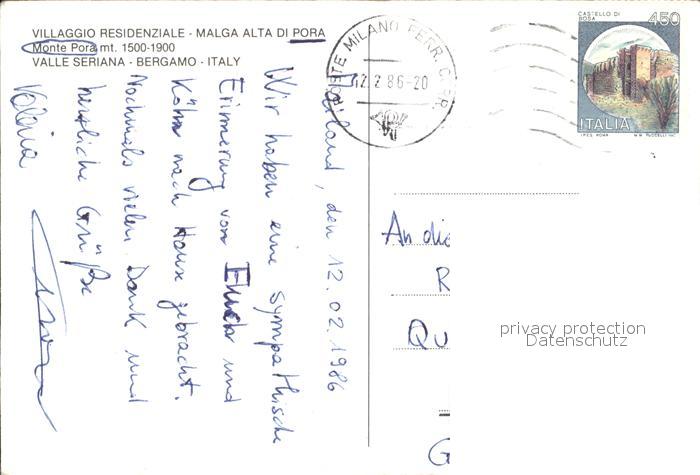 VILLAGGIO RESIDENZIALE - MALGA ALTA DI PORA
Monte Pora mt. 1500-1900
VALLE SERIANA - BERGAMO - ITALY
POSTE MILANO FERR. C.P.R.
12.2.86-20
CASTELLO DI BOSA
450
ITALIA
I.P.Z.S. ROMA
Mailand, den 12.02.1986
Wir haben eine sympathische
Erinnerung von Euch und
Köln nach Hause gebracht.
Nochmals vielen Dank und
herzliche Grüße
Valeria
An die
R
Qu
G
privacy protection
Datenschutz